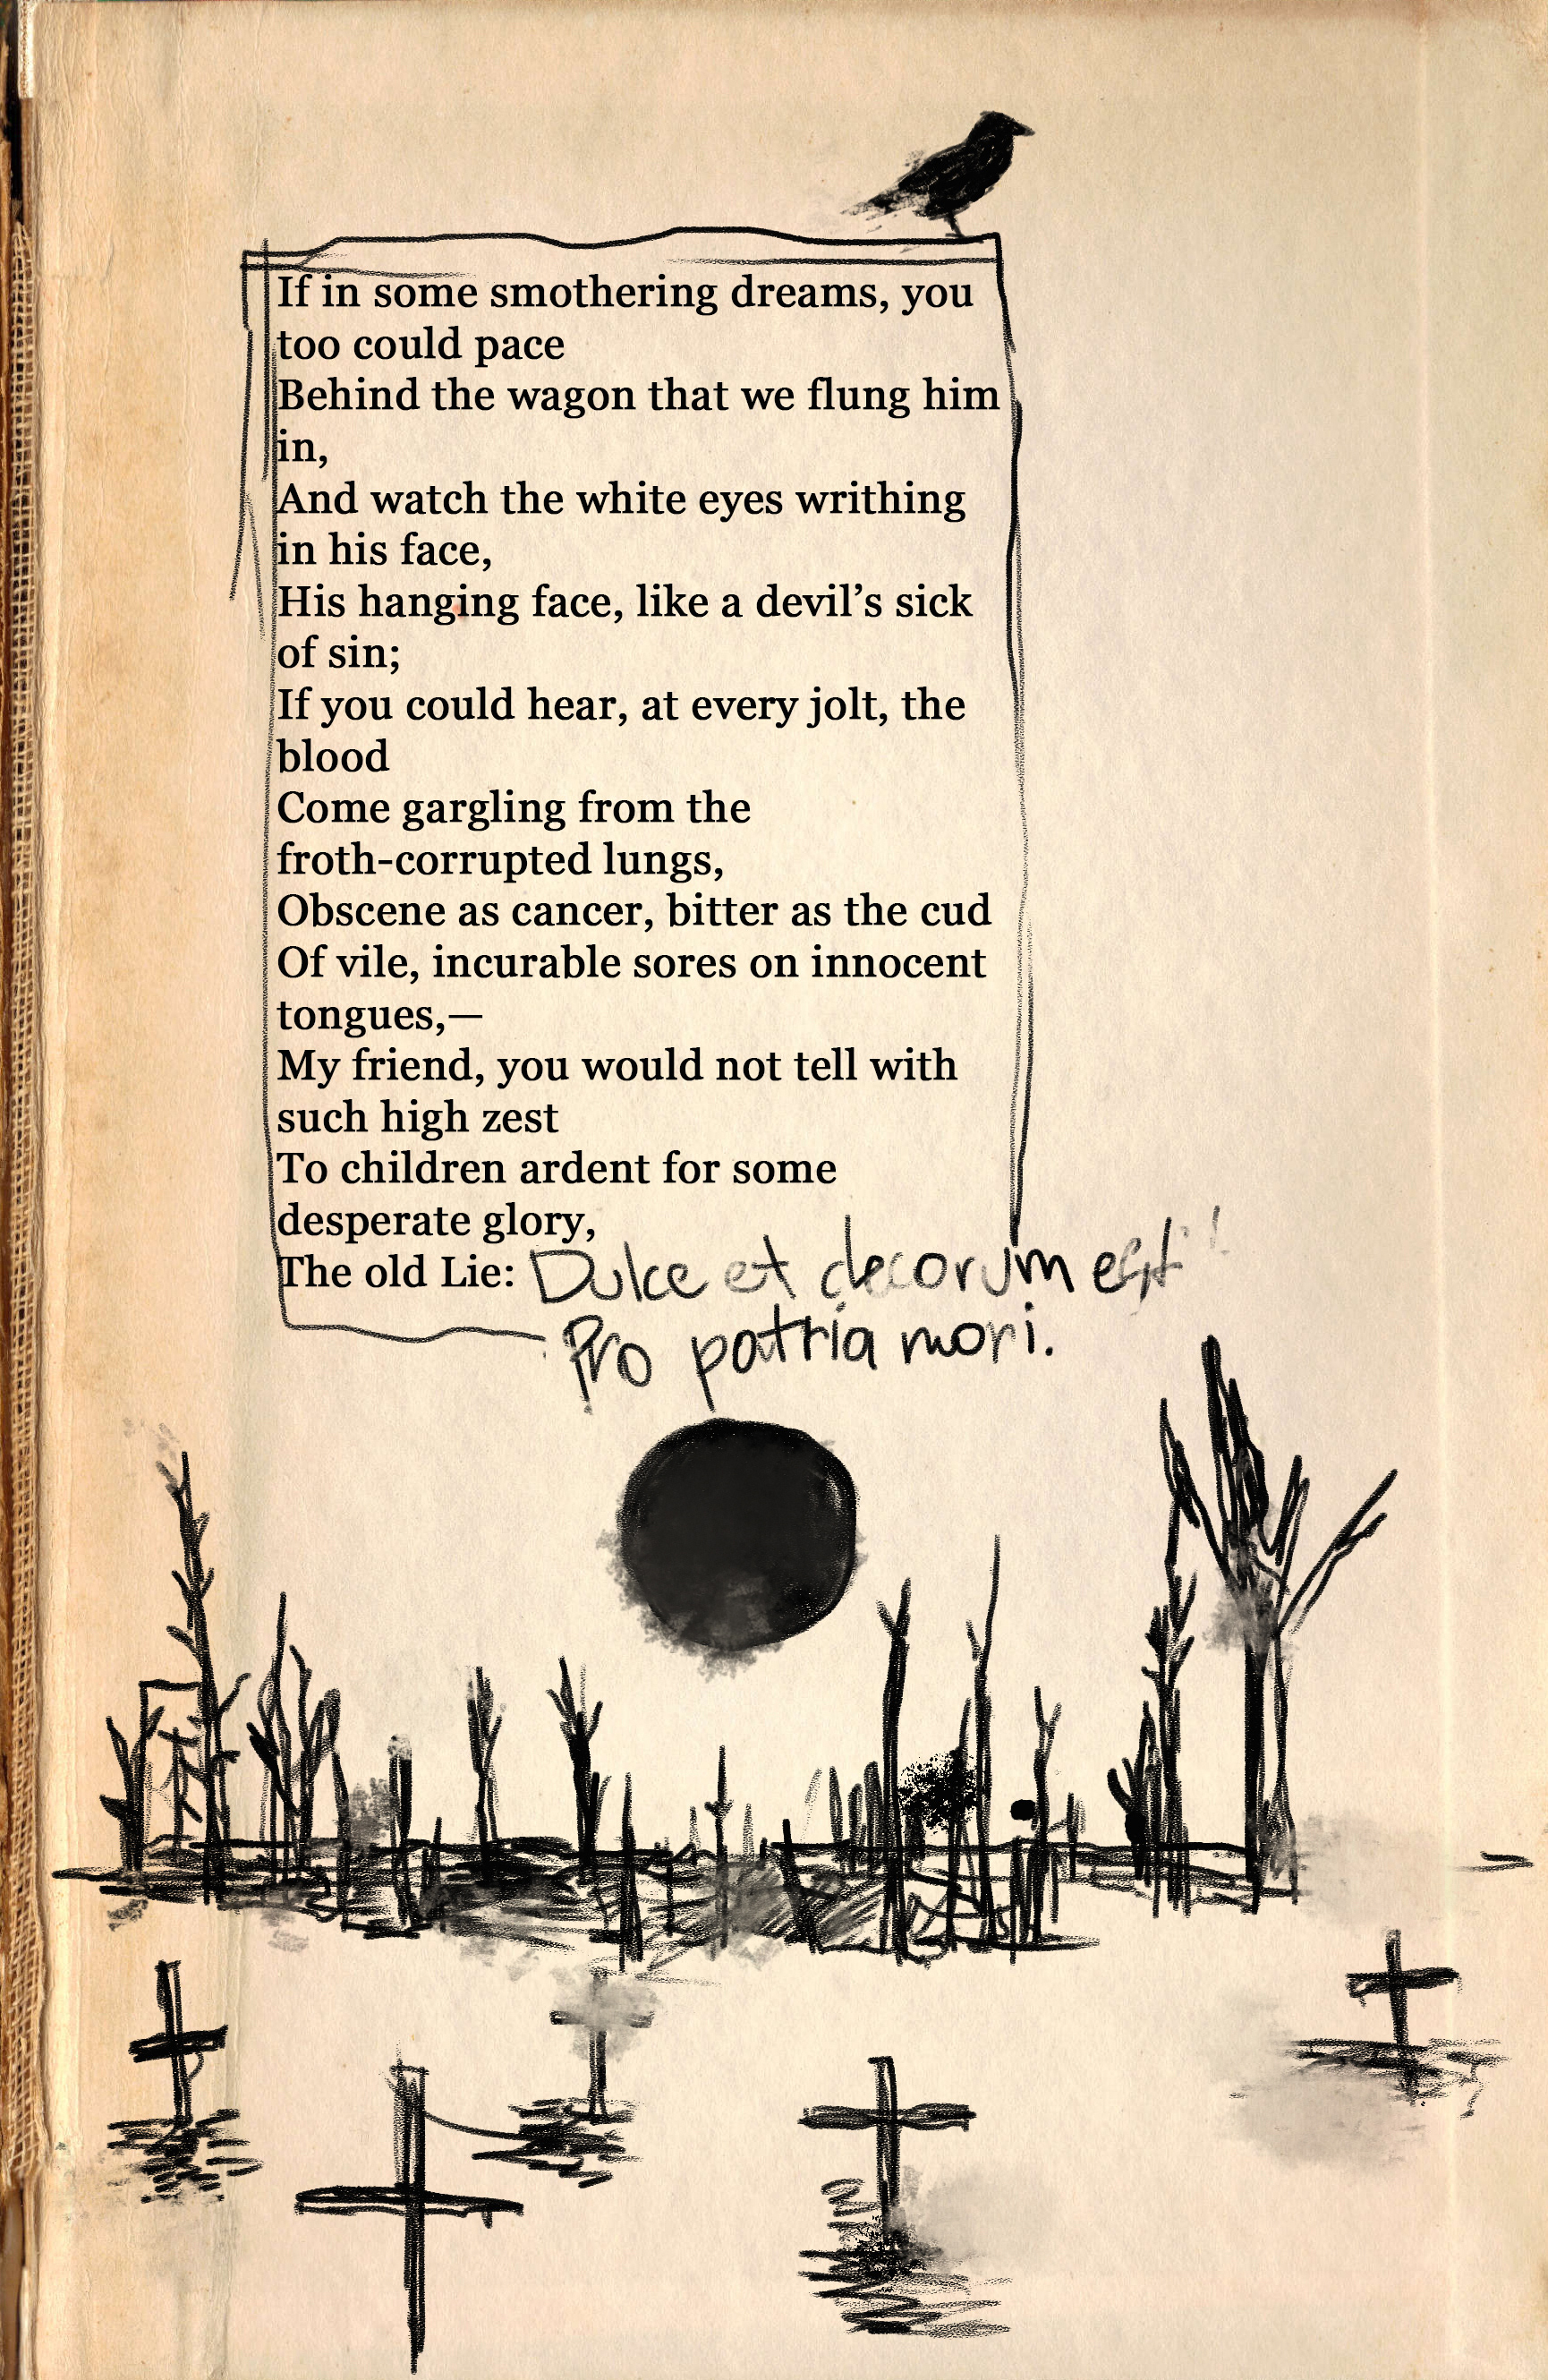 If in some smothering dreams, you
too could pace
Behind the wagon that we flung him
in,
And watch the white eyes writhing
in his face,
His hanging face, like a devil’s sick
of sin;
If you could hear, at every jolt, the
blood
Come gargling from the
froth-corrupted lungs,
Obscene as cancer, bitter as the cud
Of vile, incurable sores on innocent
tongues,—
My friend, you would not tell with
such high zest
To children ardent for some
desperate glory,
The old Lie: Dulce et decorum est
Pro patria mori.